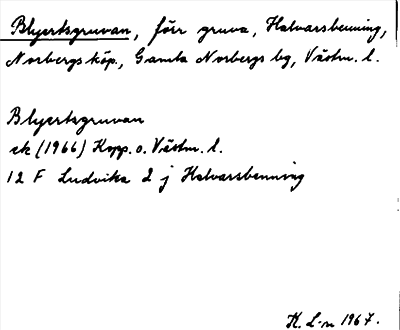 Blyertsgruvan, förr gruva, Halvarsbenning,
Norbergs köp., Gamla Norbergs bg, Västm. l.
Blyertsgruvan
ek (1966) Kopp. o. Västm. l.
12 F Ludvika 2 j Halvarsbenning
K. L-n 1967.